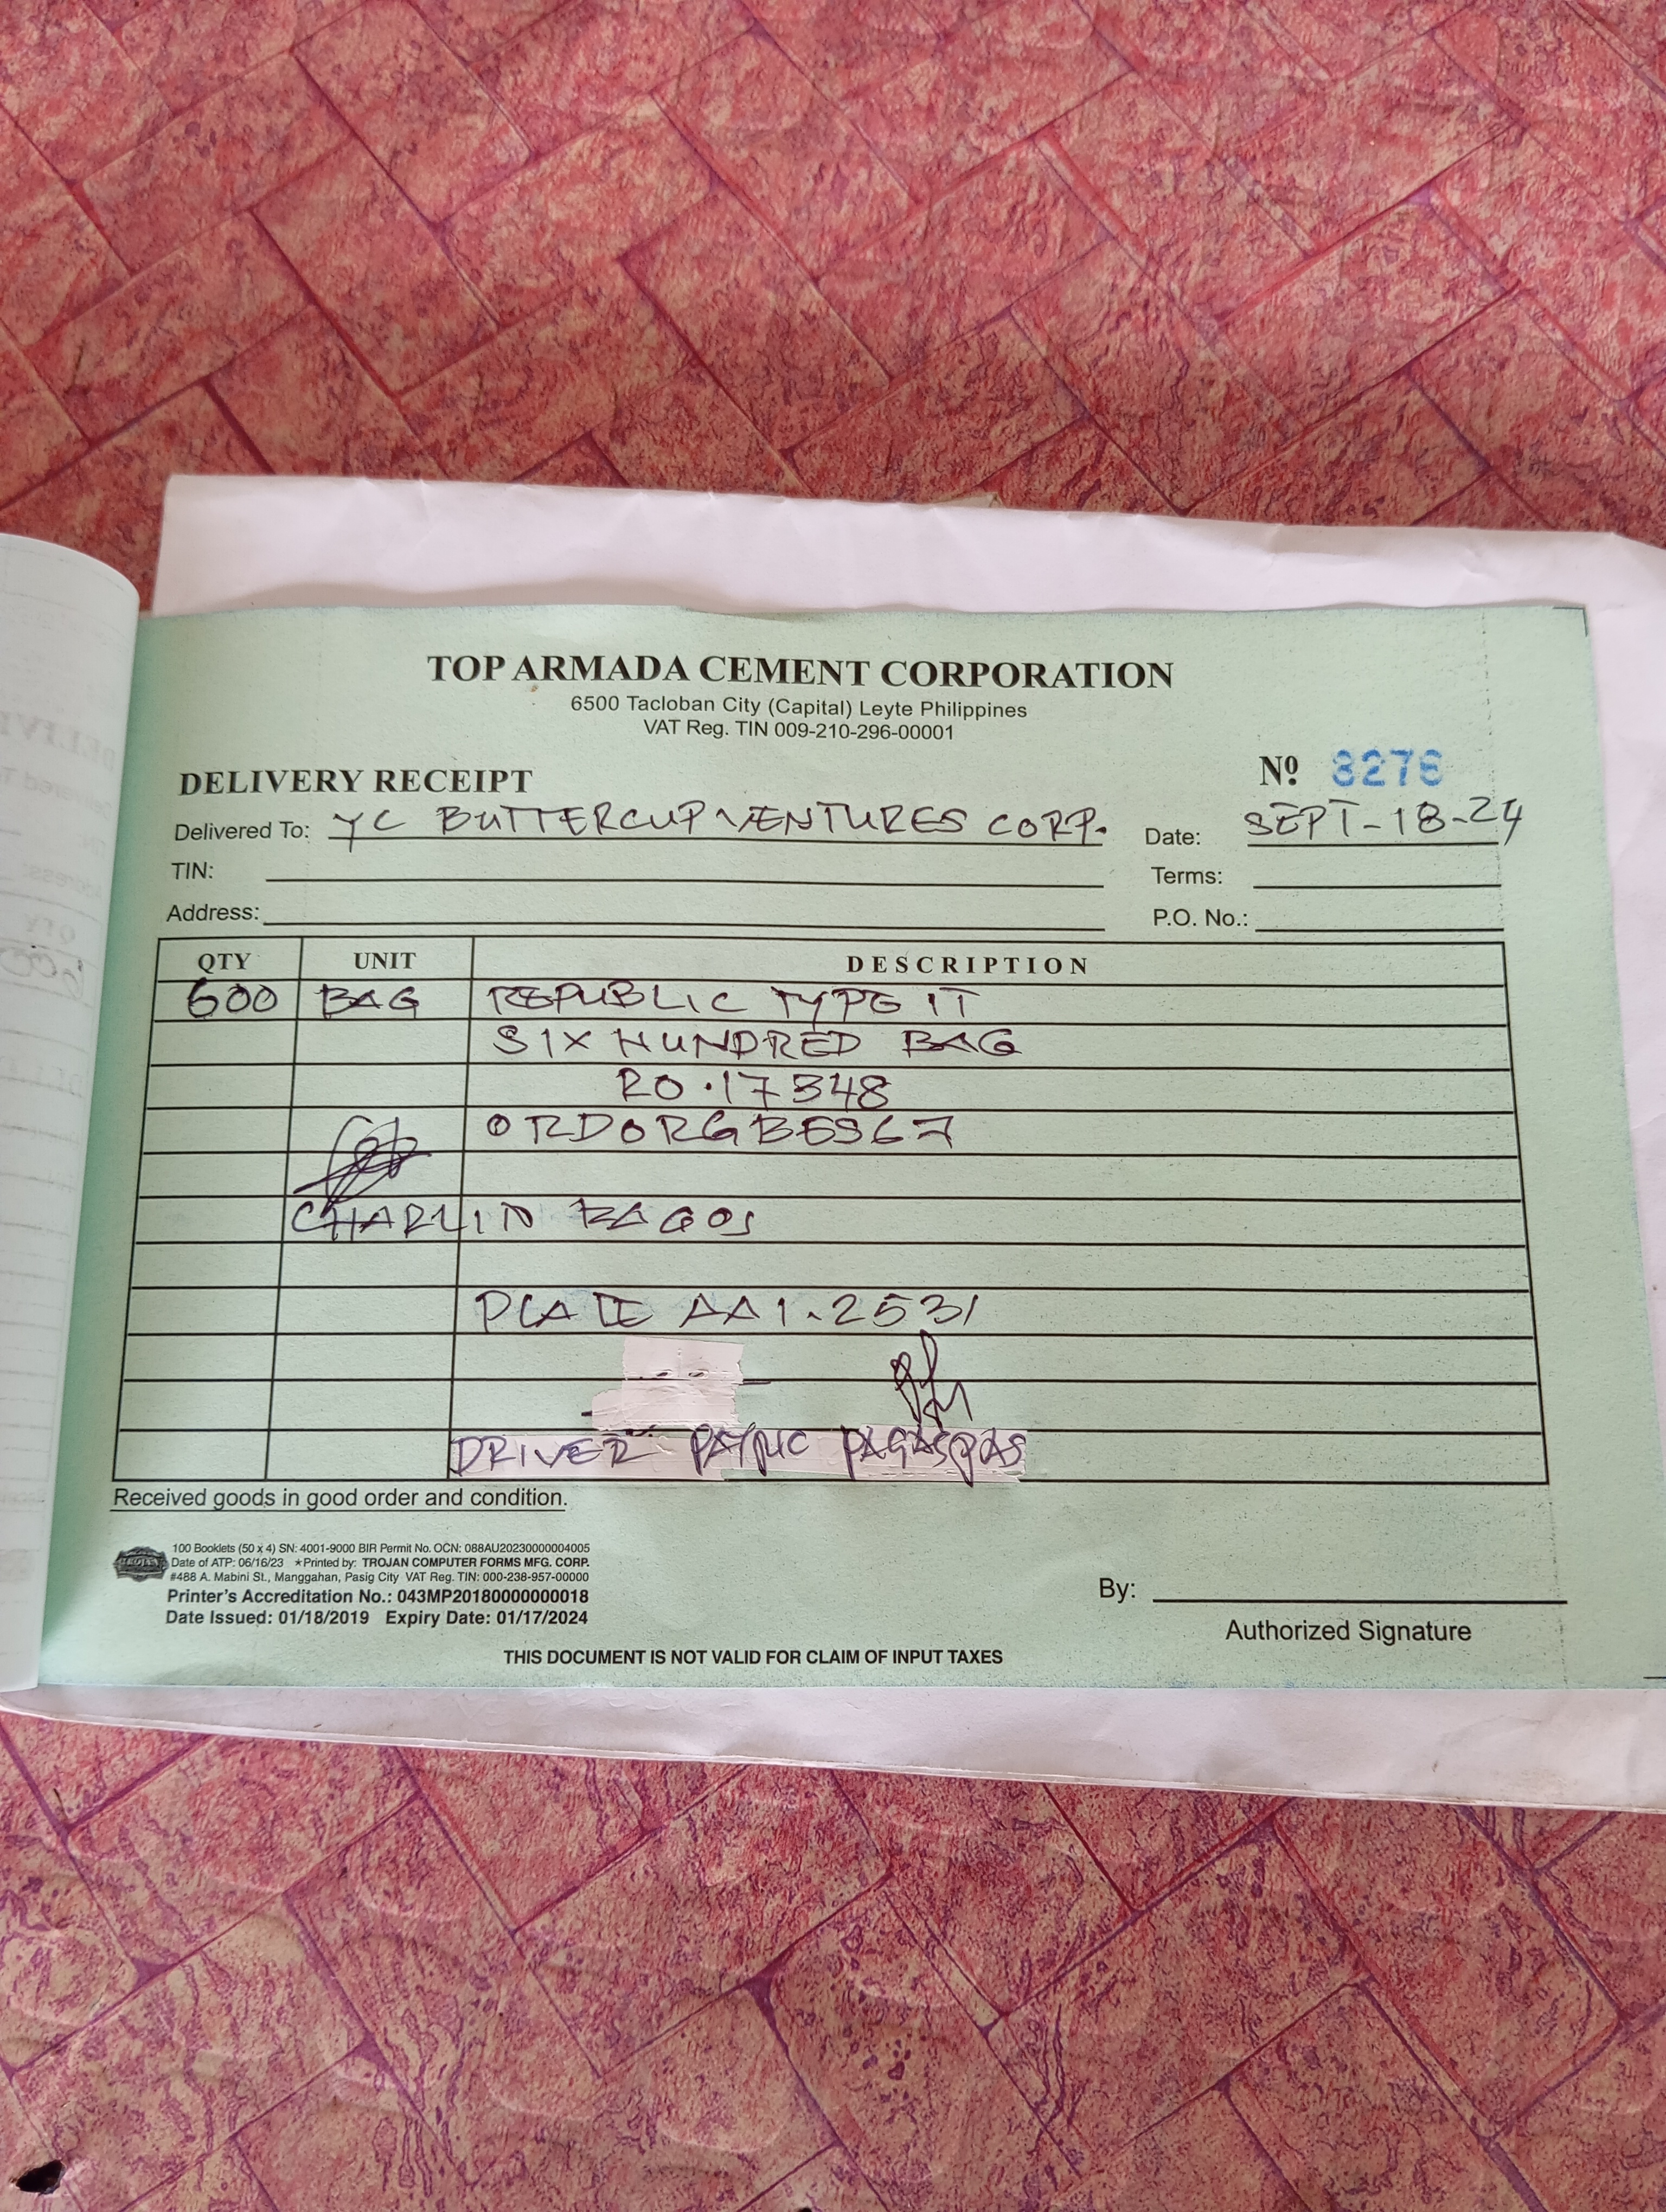 TOP ARMADA CEMENT CORPORATION
6500 Tacloban City (Capital) Leyte Philippines
VAT Reg. TIN 009-210-296-00001
DELIVERY RECEIPT Nº 8276
Delivered To: YC BUTTERCUP VENTURES CORP. Date: SEPT-18-24
TIN: Terms:
Address: P.O. No.:
QTY UNIT DESCRIPTION
600 BAG REPUBLIC TYPE IT
SIX HUNDRED BAG
RO.17348
CHARLIN BAGOS
PLATE AA1.2531
DRIVER PAGASPAS
Received goods in good order and condition.
100 Booklets (50 x 4) SN: 4001-9000 BIR Permit No. OCN: 088AU20230000004005
TROJAN Date of ATP: 06/16/23 ★Printed by: TROJAN COMPUTER FORMS MFG. CORP.
#488 A. Mabini St., Manggahan, Pasig City VAT Reg. TIN: 000-238-957-00000
Printer's Accreditation No.: 043MP20180000000018
Date Issued: 01/18/2019 Expiry Date: 01/17/2024
By:
Authorized Signature
THIS DOCUMENT IS NOT VALID FOR CLAIM OF INPUT TAXES